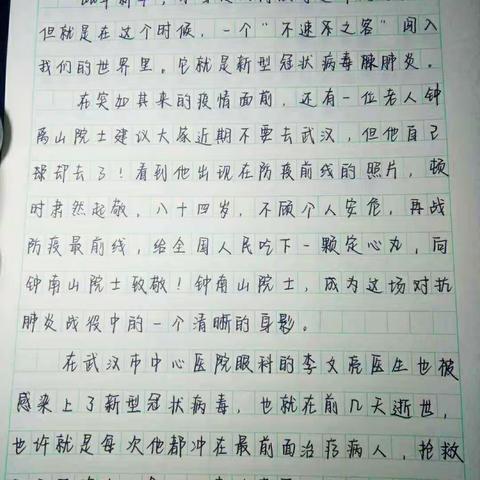 但就是在这个时候，一个“不速不之客”闯入
我们的世界里。它就是新型冠状病毒肺炎。
在突如其来的疫情面前，还有一位老人钟
南山院士建议大家近期不要去武汉，但他自己
却去了！看到他出现在防疫前线的照片，顿
时肃然起敬，八十四岁，不顾个人安危，再战
防疫最前线，给全国人民吃下一颗定心丸，向
钟南山院士致敬！钟南山院士，成为这场对抗
肺炎战役中的一个清晰的身影。
在武汉市中心医院眼科的李文亮医生也被
感染上了新型冠状病毒，也就在前几天逝世，
也许就是每次他都冲在最前面治疗病人，抢救